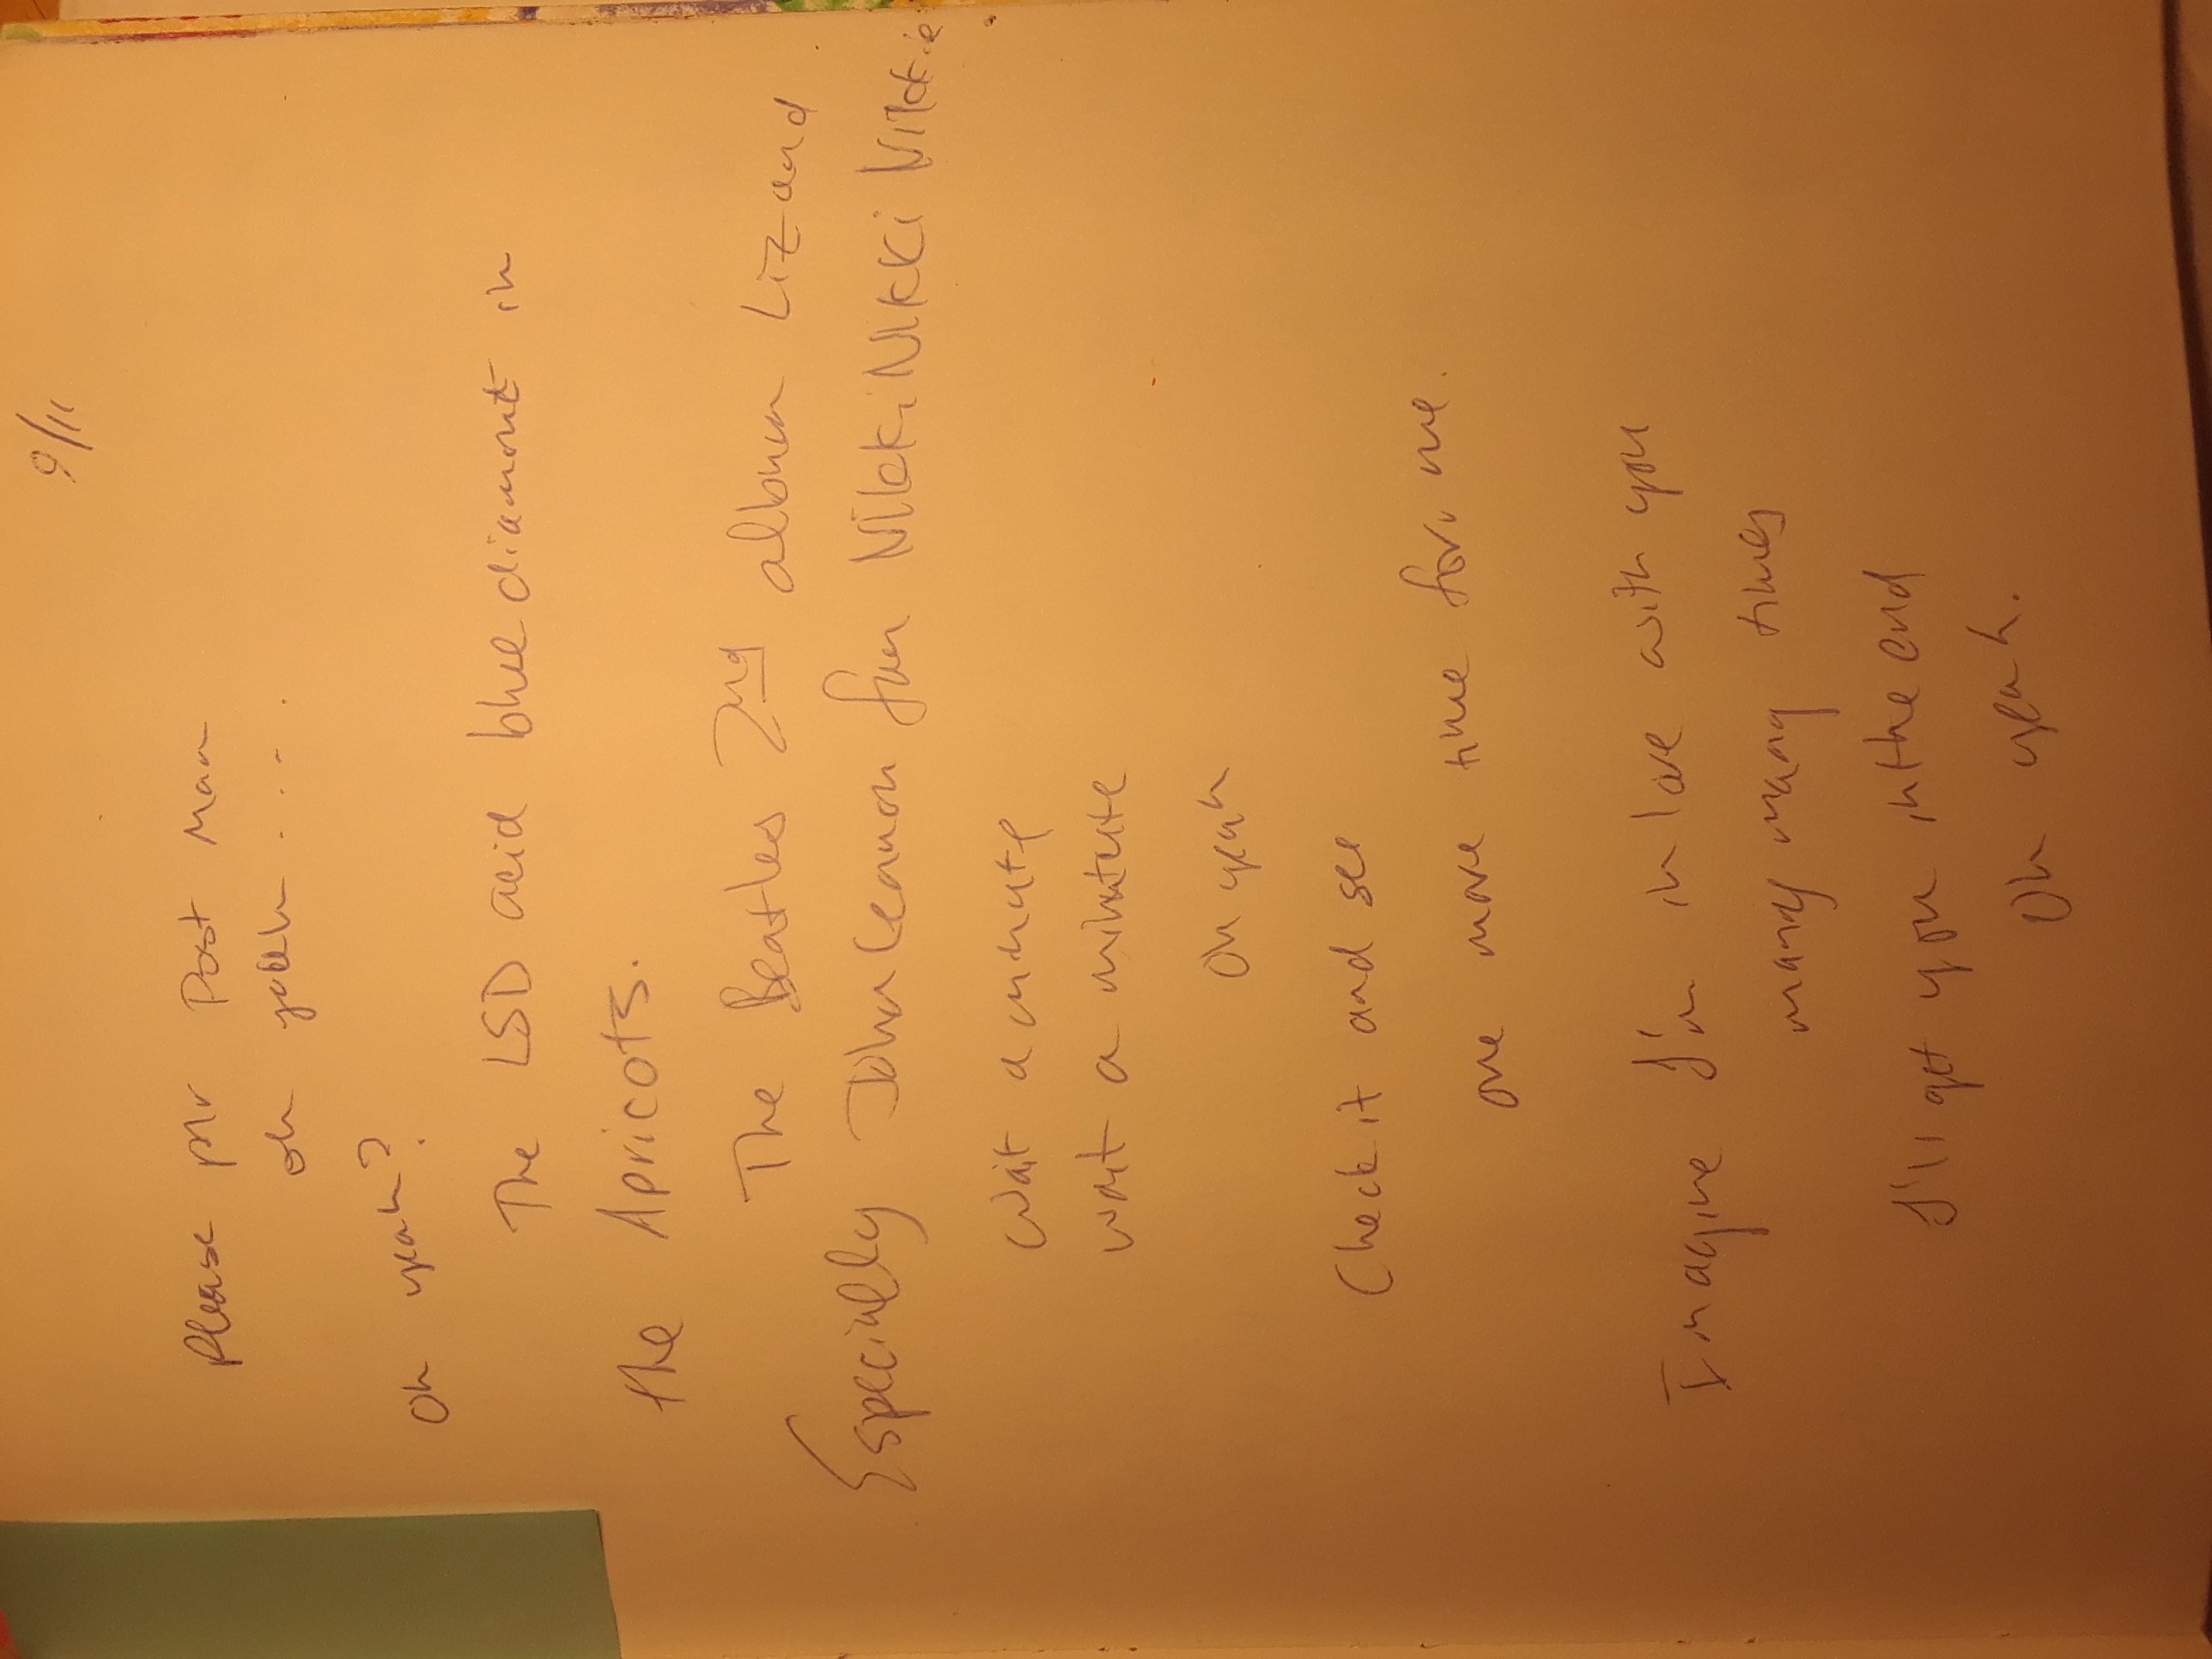 9/11
Please Mr Post Man
oh yeah . . . .
Oh yeah?
The LSD acid blue diamont in
the Apricots.
The Beatles 2nd album Lizard
Especially John Lennon fun Nikki Nikki Nikki
Wait a minute
wait a minute
oh yeah
Check it and see
one more time for me.
Imagine I'm in love with you
many many times
I'll get you in the end
Oh yeah.